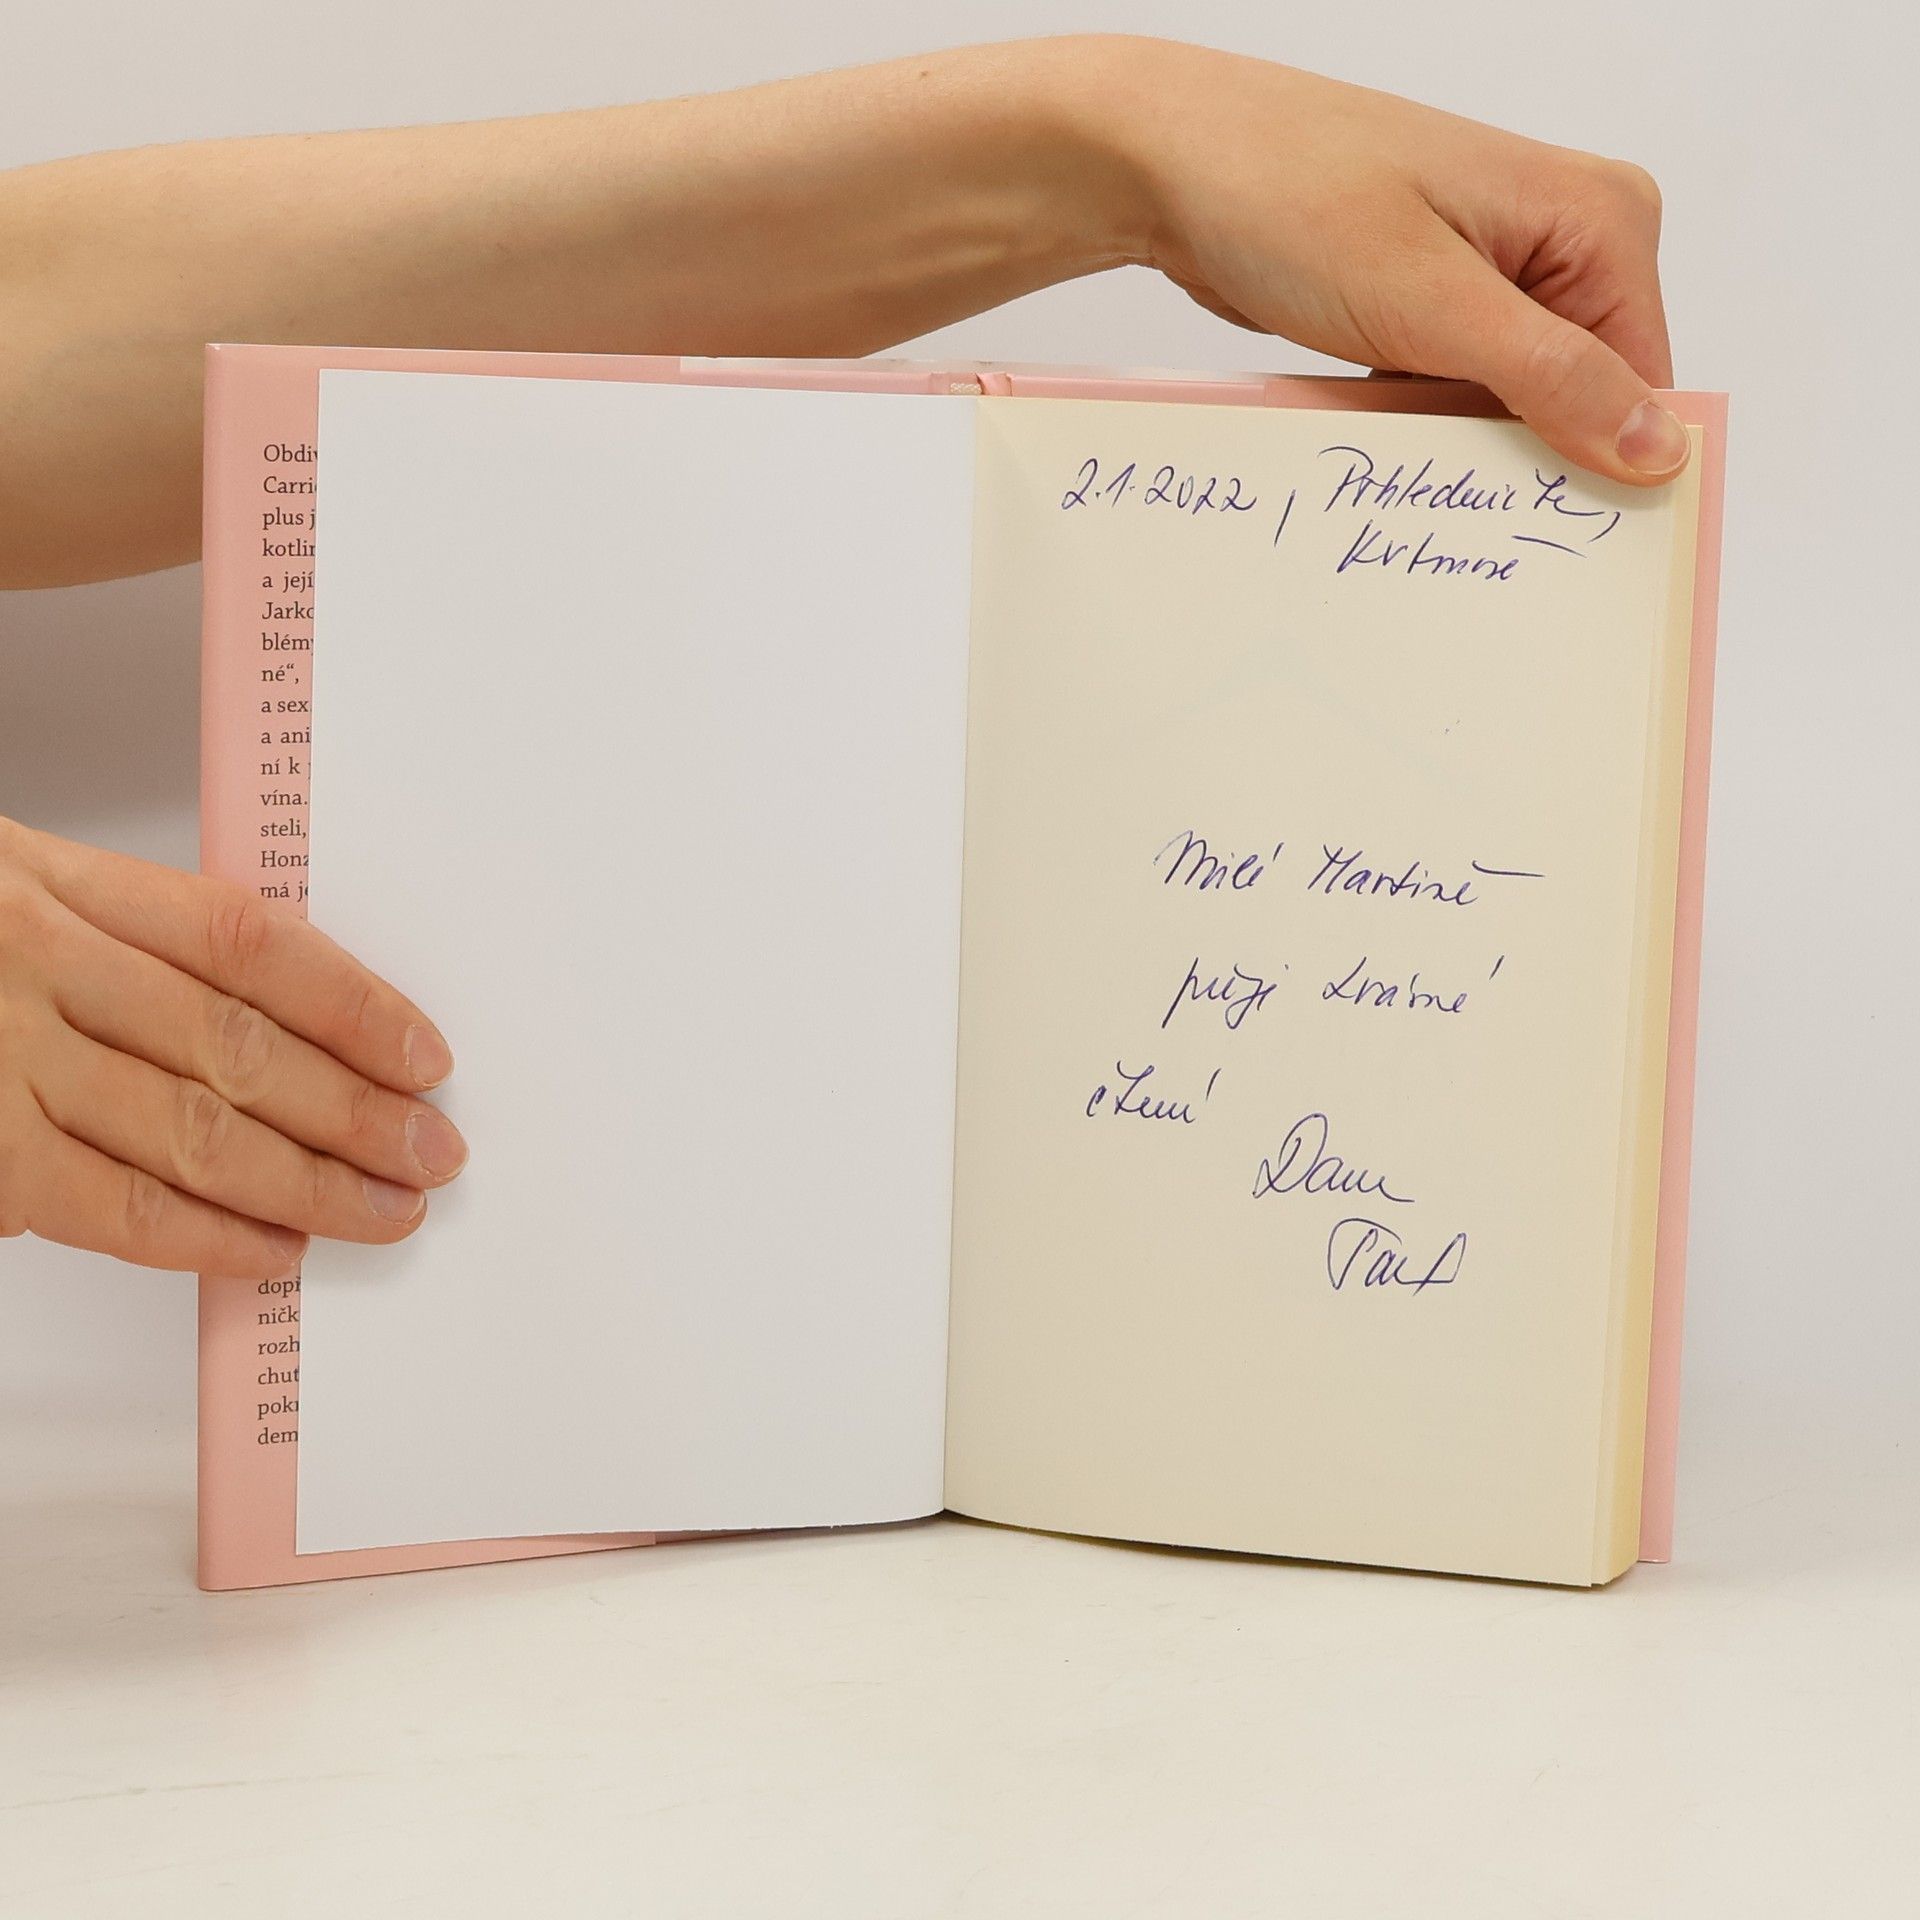 Obdiv
Carri
plus j
kotlin
a její
Jarko
blémy
né“,
a sex
a ani
ní k
vína.
steli,
Honz
má je
dopř
ničk
rozh
chuť
pokr
dem
2.1.2022,
Milé Martině
přeji krásné
čtení
Dana